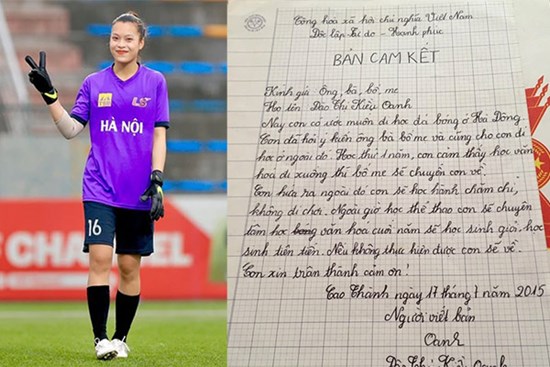 HÀ NỘI
16
LS
CHANNEL
Cộng hòa xã hội chủ nghĩa Việt Nam
Độc lập Tự do - Hạnh phúc
BẢN CAM KẾT
Kính gửi: Ông, bà, bố, mẹ
Họ tên: Đào Thị Kiều Oanh
Nay con có ước muốn đi học đá bóng ở Hà Đông.
Con đã hỏi ý kiến ông bà bố mẹ và cũng cho con đi
học ở ngoài đó. Học thử 1 năm, con cảm thấy học văn
hóa đi xuống thì bố mẹ sẽ chuyển con về.
Con hứa ra ngoài đó con sẽ học hành chăm chỉ,
không đi chơi. Ngoài giờ học thể thao con sẽ chuyên
tâm học văn hóa cuối năm sẽ học sinh giỏi, học
sinh tiên tiến. Nếu không thực hiện được con sẽ về.
Con xin trân thành cảm ơn!
Cao Thành ngày 17 tháng 7 năm 2015
Người viết bản
Oanh
Đào Thị Kiều Oanh